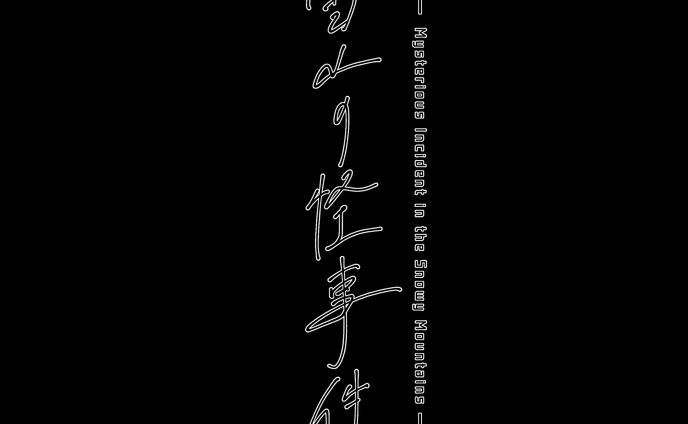 雪山の怪事件
— Mysterious Incident in the Snowy Mountains —